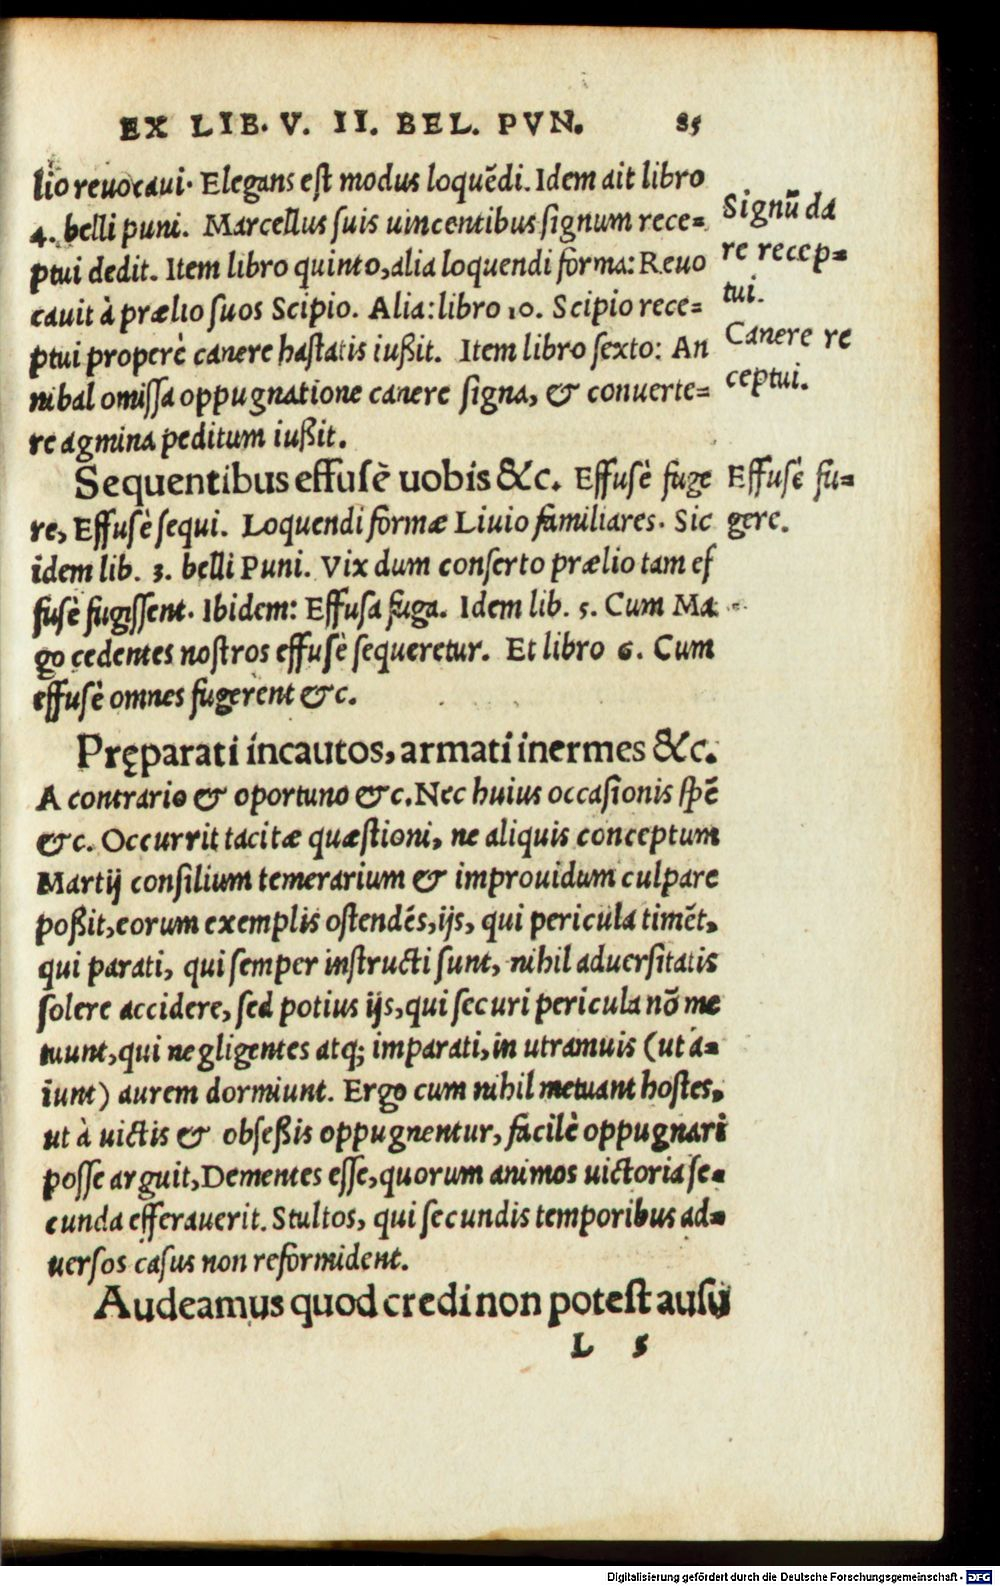 EX LIB. V. II. BEL. PVN. 85
lio reuocaui. Elegans est modus loquēdi. Idem ait libro
4. belli puni. Marcellus suis uincentibus signum rece=
ptui dedit. Item libro quinto, alia loquendi forma: Reuo
cauit à prælio suos Scipio. Alia: libro 10. Scipio rece=
ptui properè canere hastatis iußit. Item libro sexto: An
nibal omissa oppugnatione canere signa, & conuerte=
re agmina peditum iußit.
Signū da
re recep=
tui.
Canere re
ceptui.
Sequentibus effusē uobis &c. Effusè fuge
re, Effusè sequi. Loquendi formæ Liuio familiares. Sic
idem lib. 3. belli Puni. Vix dum conserto prælio tam ef
fusè fugissent. Ibidem: Effusa fuga. Idem lib. 5. Cum Ma
go cedentes nostros effusè sequeretur. Et libro 6. Cum
effusè omnes fugerent &c.
Effusè fu=
gere.
Pręparati incautos, armati inermes &c.
A contrario & oportuno &c. Nec huius occasionis spē
&c. Occurrit tacitæ quæstioni, ne aliquis conceptum
Martij consilium temerarium & improuidum culpare
poßit, eorum exemplis ostendēs, ijs, qui pericula timēt,
qui parati, qui semper instructi sunt, nihil aduersitatis
solere accidere, sed potius ijs, qui securi pericula nō me
tuunt, qui negligentes atq; imparati, in utramuis (ut á=
iunt) aurem dormiunt. Ergo cum nihil metuant hostes,
ut à uictis & obseßis oppugnentur, facilè oppugnari
posse arguit, Dementes esse, quorum animos uictoria se=
cunda efferauerit. Stultos, qui secundis temporibus ad=
uersos casus non reformident.
Audeamus quod credi non potest ausu
L 5
Digitalisierung gefördert durch die Deutsche Forschungsgemeinschaft - DFG